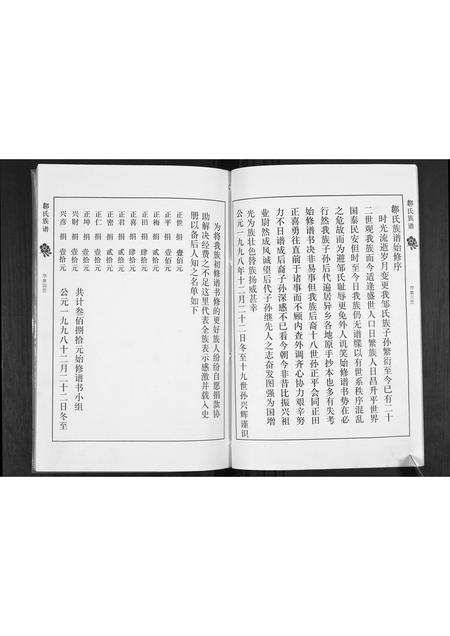 鄒氏族谱
序章三页
鄒氏族谱始修序
时光流逝岁月变更我邹氏族子孙繁衍至今已有二十
二世观我族而今适逢盛世人口日繁族人日昌升平世界
国泰民安但时至今日我族仍无谱牒以有世系秩序混乱
之危故而为避邹氏耻辱更免外人讥笑始修谱书势在必
行然我族子孙后代遍居异乡各地原手抄本也多有失考
始修谱书决非易事但我族后裔十八世孙正平会同正田
正喜勇往直前于诸事而不顾内查外调齐心协力艰辛努
力不日谱成后裔子孙深感不已看今朝今非昔比振兴祖
业尉然成风诚望后代子孙继先人之志奋发图强为国增
光为族壮色替族扬威甚幸
公元一九九八年十二月二十二日冬至十九世孙兴辉谨识
为将我族初修谱书修的更好族人纷纷自愿捐款协
助解决经费之不足这里代表全族表示感激并载入史
册以备后人知之名单如下
正世 捐 壹佰元
正平 捐 壹佰元
正梅 捐 贰拾元
正田 捐 肆拾元
正喜 捐 肆拾元
正君 捐 贰拾元
正密 捐 贰拾元
正仁 捐 壹拾元
正坤 捐 壹拾元
兴财 捐 壹拾元
兴彦 捐 壹拾元
共计叁佰捌拾元始修谱书小组
公元一九九八十二月二十二日冬至
鄒氏族谱
序章四页